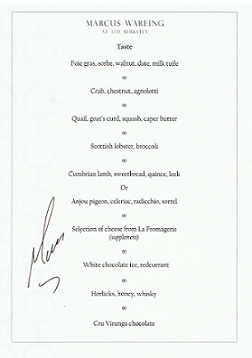 MARCUS WAREING
AT THE BERKELEY
Taste
Foie gras, sorbe, walnut, date, milk tuile
Crab, chestnut, agnolotti
Quail, goat's curd, squash, caper butter
Scottish lobster, broccoli
Cumbrian lamb, sweetbread, quince, leek
Or
Anjou pigeon, celeriac, radicchio, sorrel
Selection of cheese from La Fromagerie
(supplement)
White chocolate ice, redcurrant
Horlicks, honey, whisky
Cru Virunga chocolate